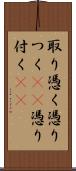 取り憑く憑り
つく 憑り
付く